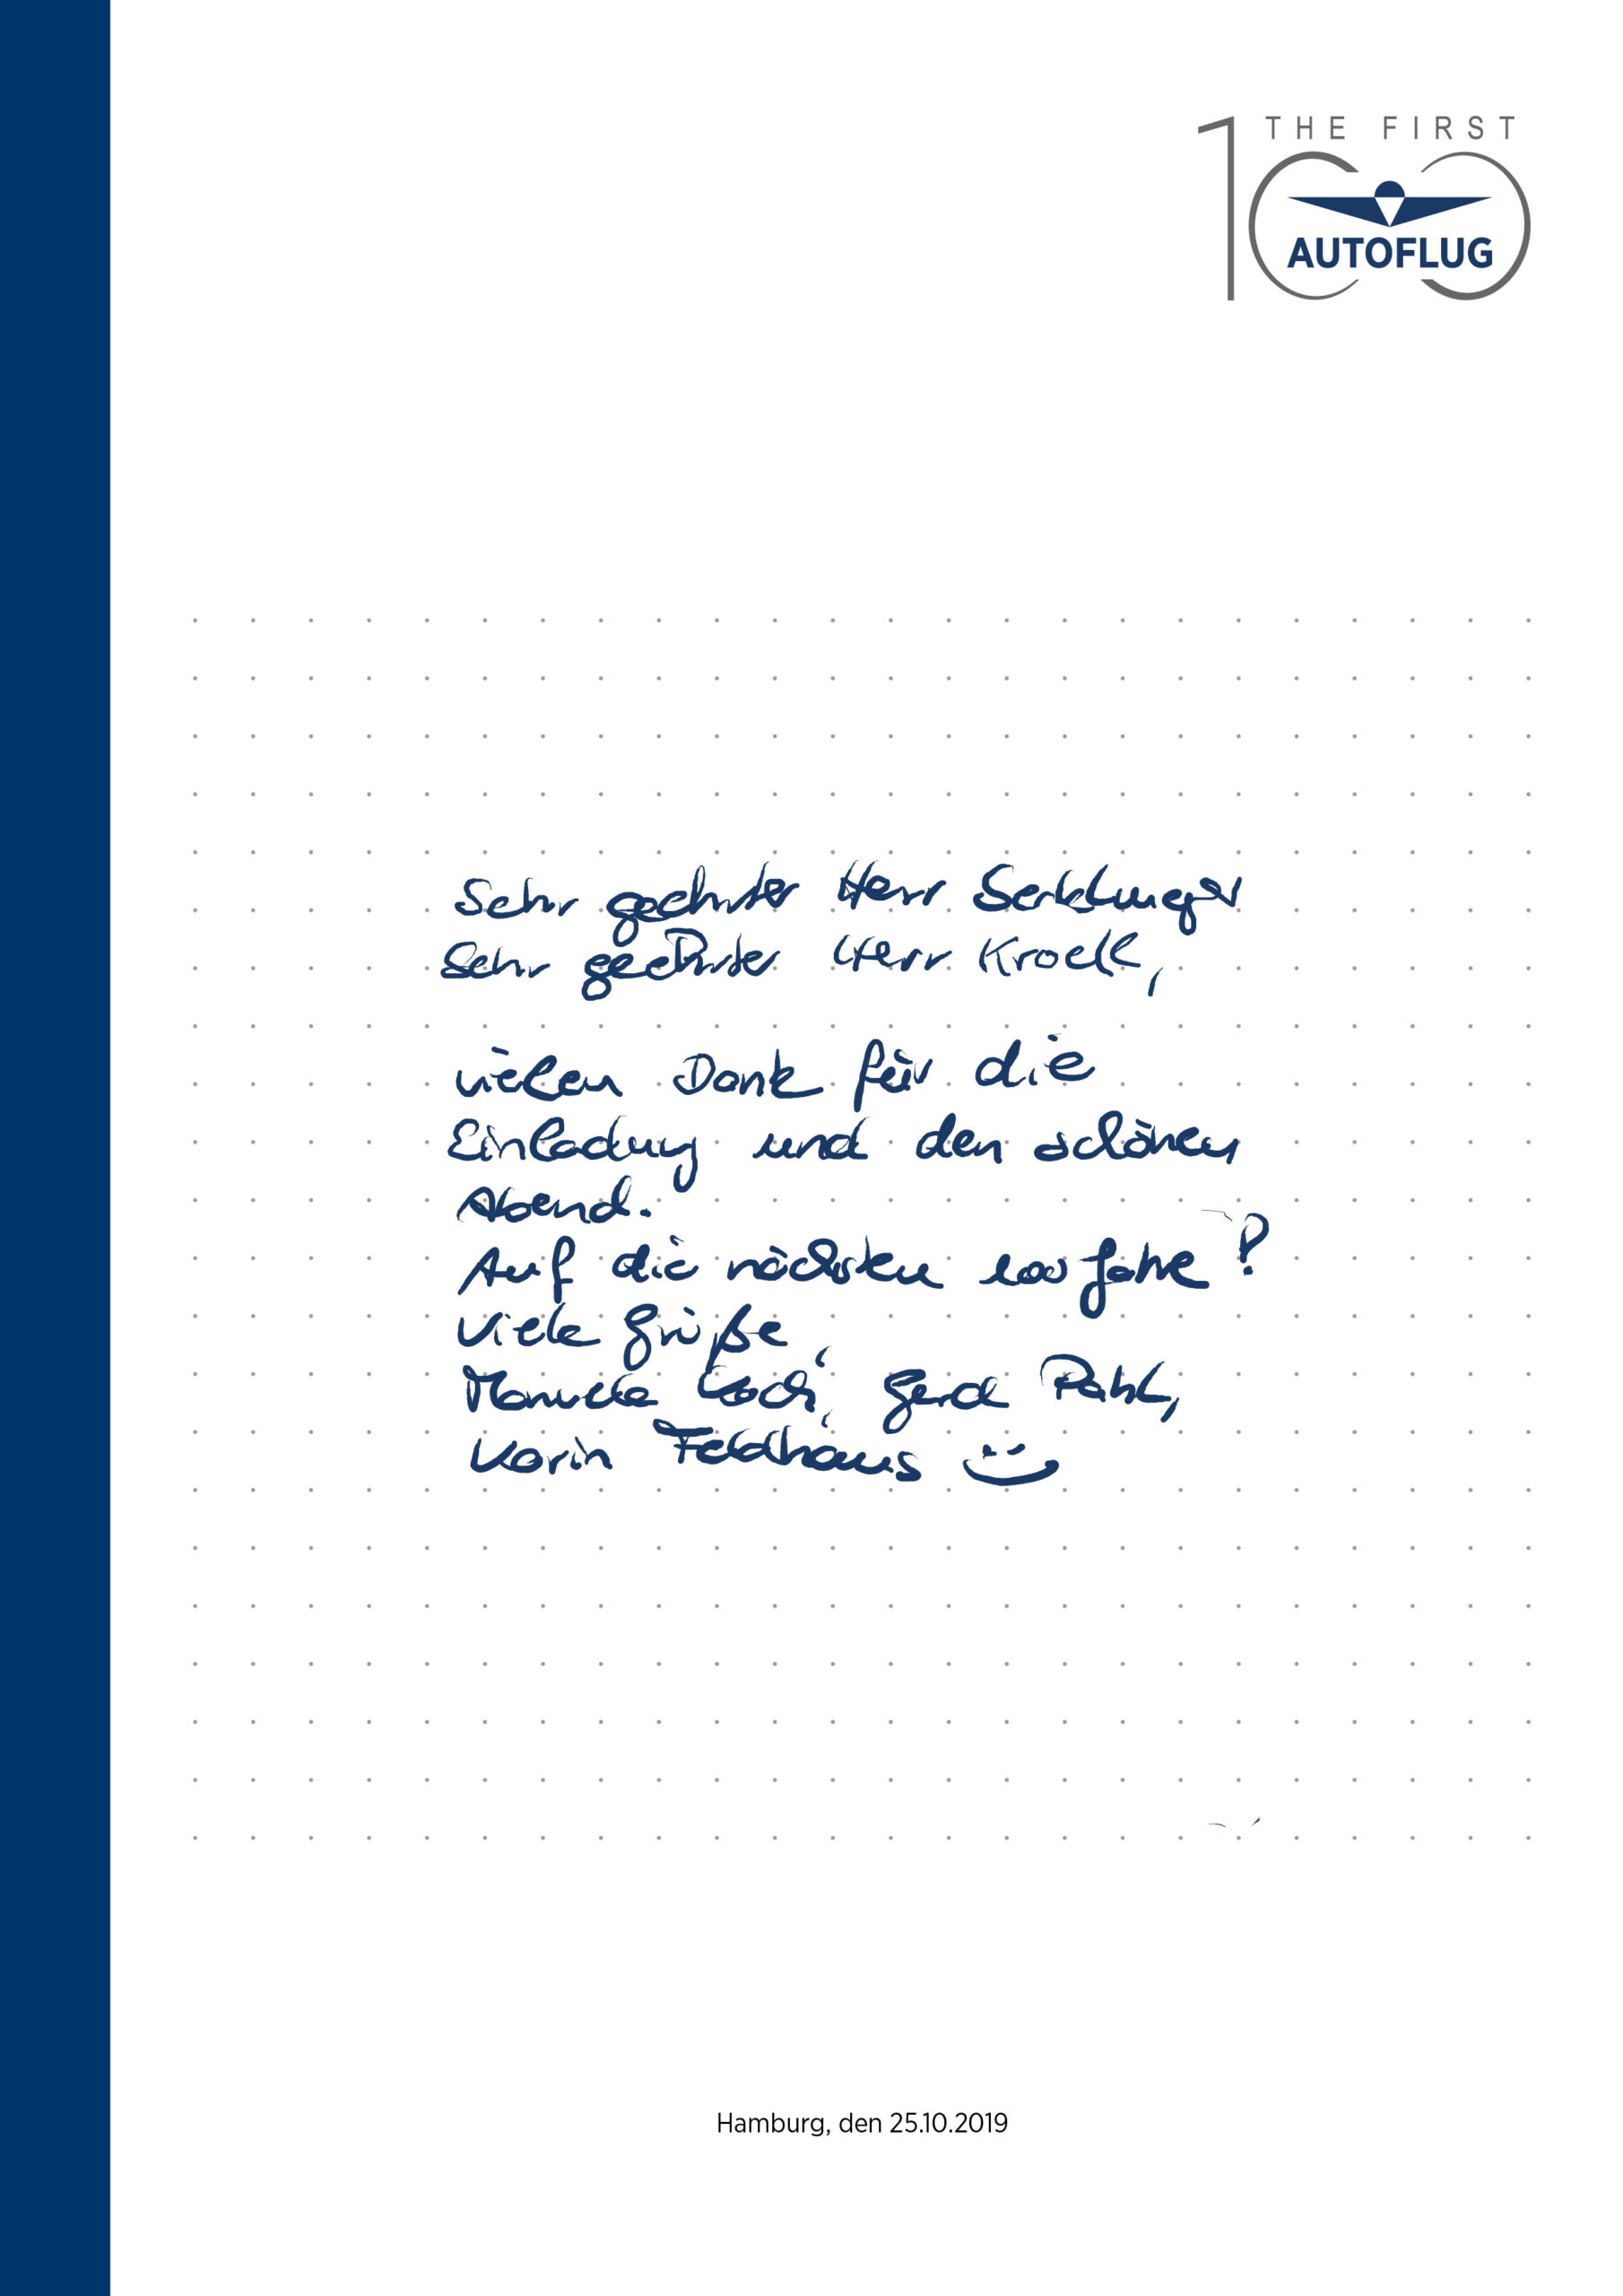 THE FIRST
100
AUTOFLUG
Sehr geehrter Herr
Sehr geehrter Herr Kroell,
vielen Dank für die
Einladung und den schönen
Abend.
Auf die nächsten 100 Jahre!
Viele Grüße,
Gerd Pahl,
Karin Feldhaus
Hamburg, den 25.10.2019